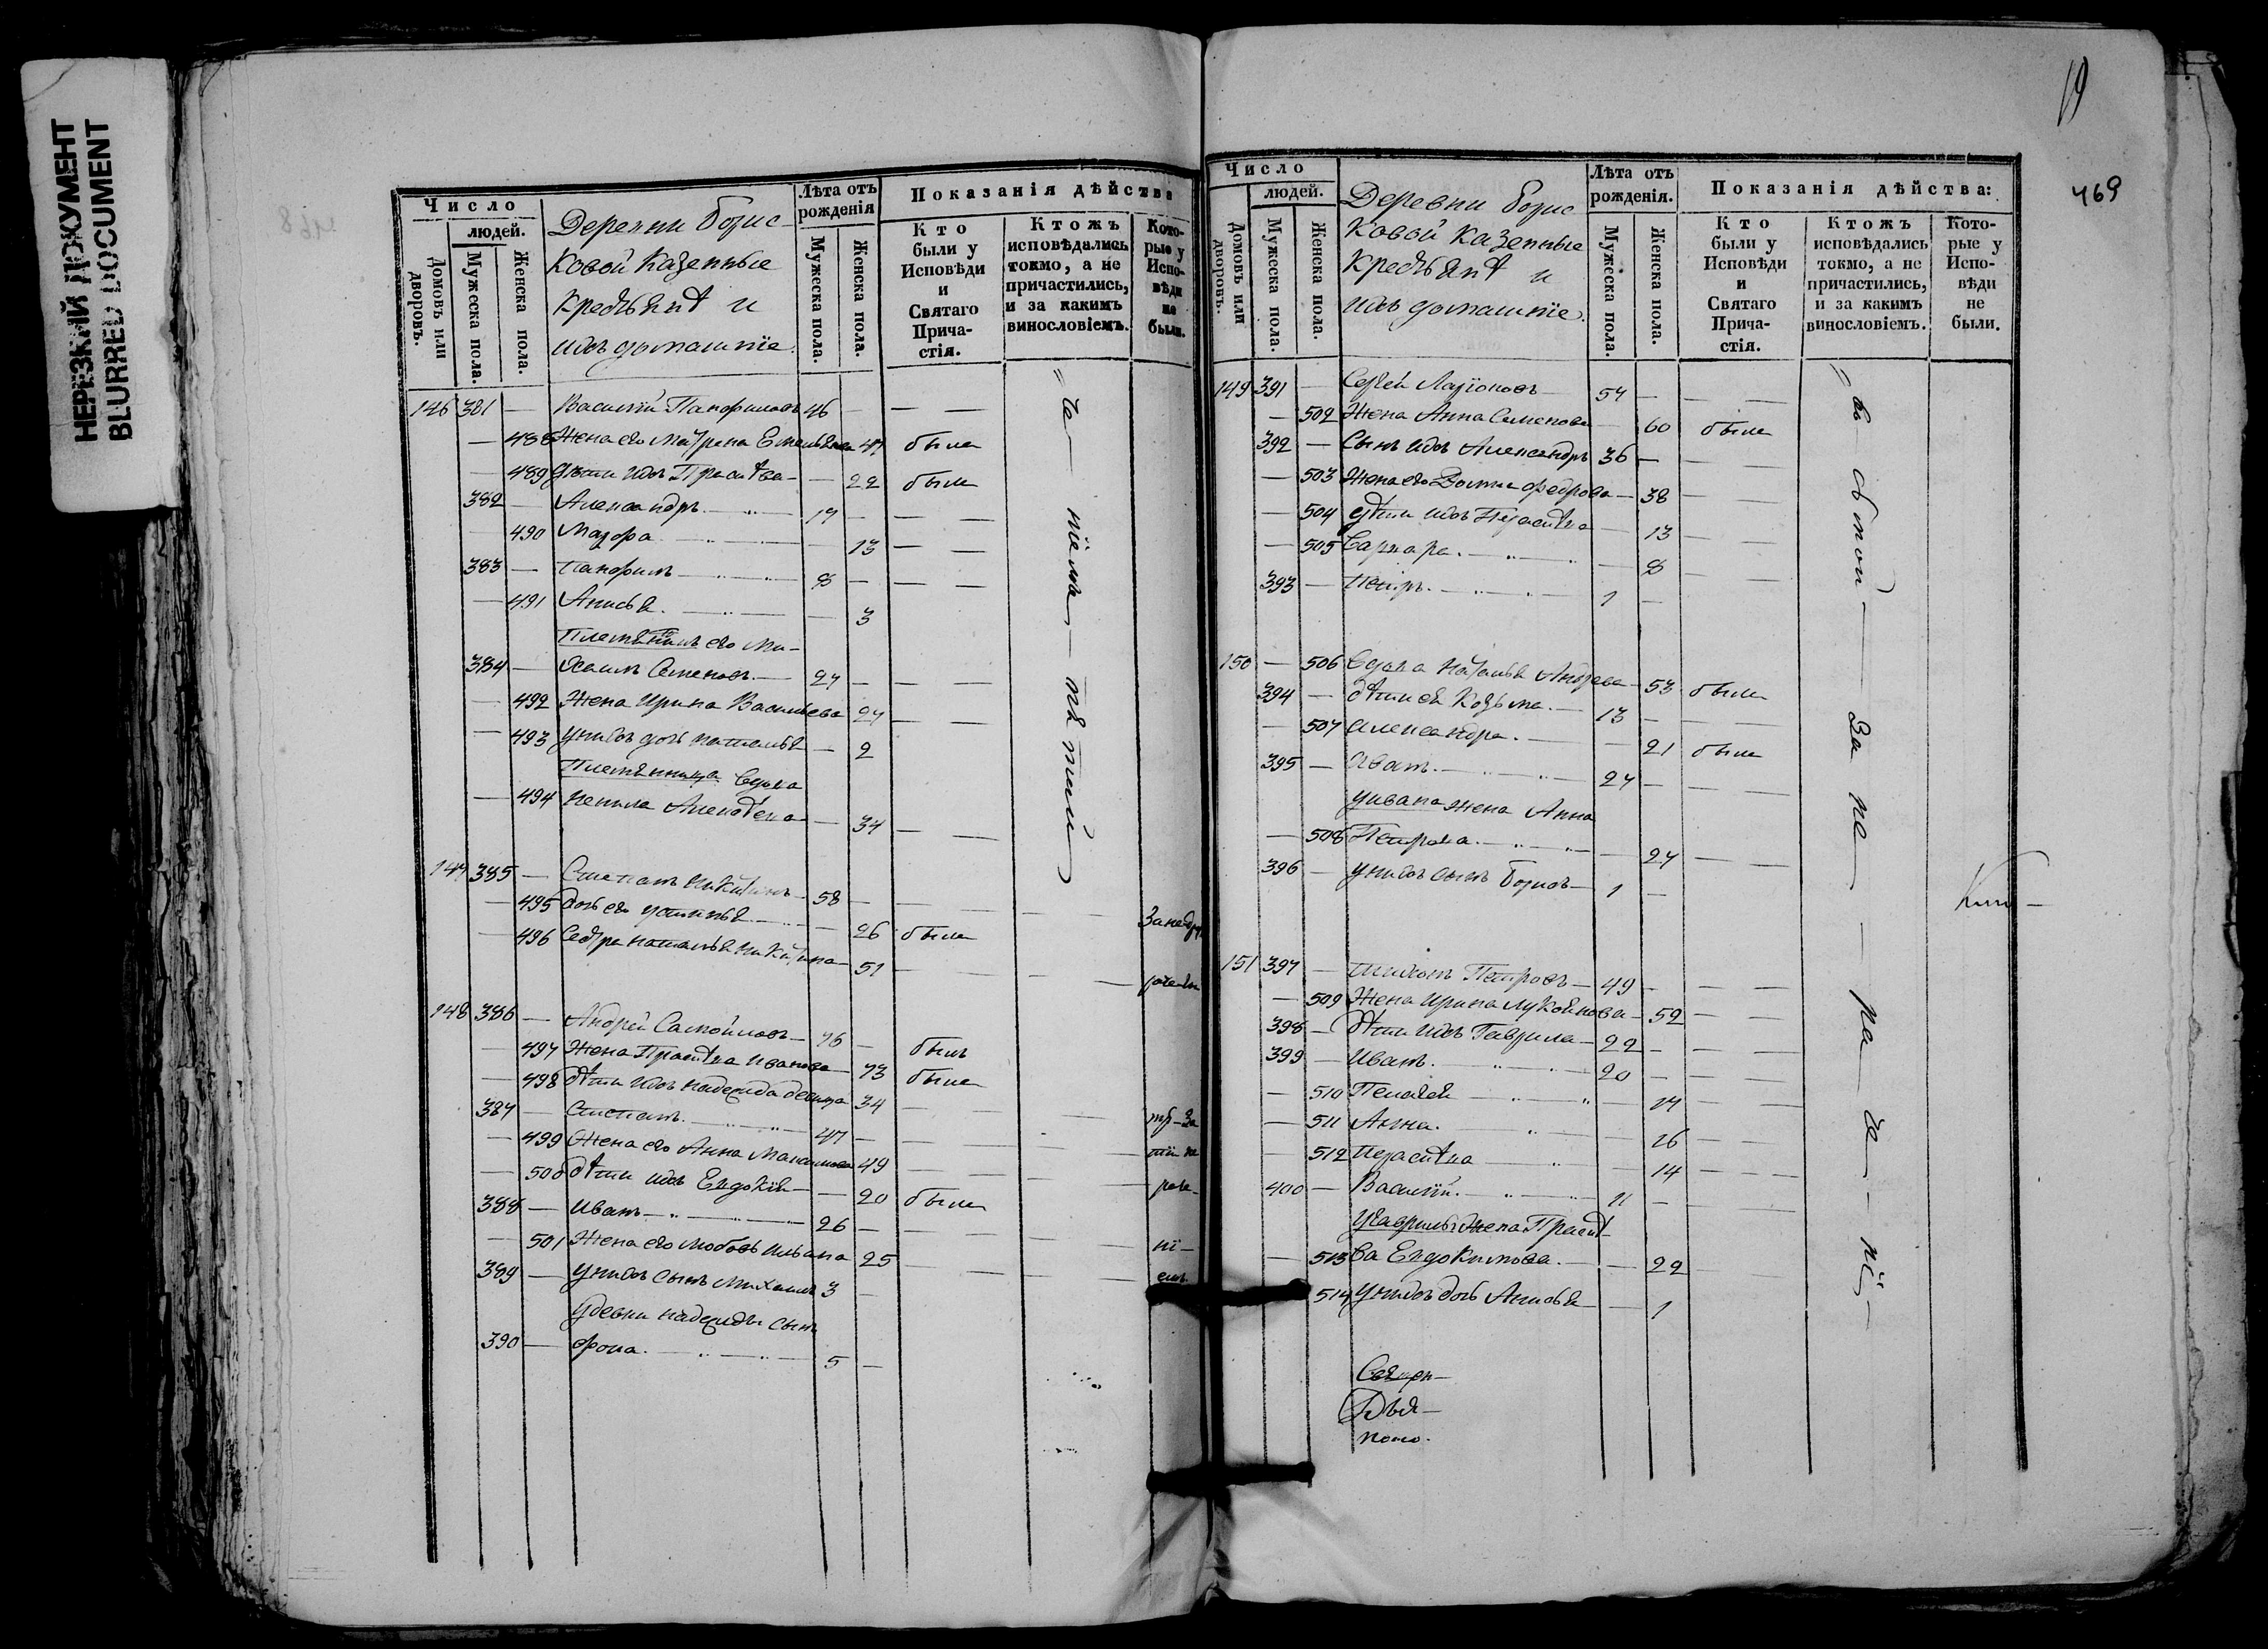 НЕРЕЗКИЙ ДОКУМЕНТ
BLURRED DOCUMENT
Число
людей.
Домовъ или дворовъ.
Мужеска пола.
Женска пола.
Деревни Борис-
ковой казенные
крестьянѣ и
ихъ домашнїе
Лѣта отъ рожденія
Мужеска пола.
Женска пола.
Показанія дѣйства
Кто были у Исповѣди и Святаго Причастія.
Ктожъ исповѣдались токмо, а не причастились, и за какимъ винословіемъ.
Которые у Исповѣди не были.
146 381 — Василїй Панфиловъ 46 —
— 488 Жена его Матрена Емельянова 47 была
— 489 Дѣти ихъ Праскева — 22 была
382 — Александръ 17 —
— 490 Мавра — 13
383 — Панфилъ 8 —
— 491 Анисья — 3
Племянникъ его Ми-
384 — хаилъ Семеновъ 27 —
— 492 Жена Ирина Васильева 27
— 493 у нихъ дочь Наталья — 2
Племянница Вдова
— 494 Алексѣева — 34
147 385 — Степанъ Никитинъ 58 —
— 495 Дочь его Устинья — 26 была
— 496 Сестра Наталья Никитина — 51
148 386 — Андрей Самойловъ 76 — былъ
— 497 Жена Праскева Иванова — 73 была
— 498 Дѣти ихъ Надежда девица 34
387 — Степанъ 47 —
— 499 Жена его Анна Максимова 49
— 500 Дѣти ихъ Евдокїя — 20 была
388 — Иванъ 26 —
— 501 Жена его Любовь 25
389 — у нихъ сынъ Михаилъ 3 —
у девки Надежды сынъ
390 — Фрола 5 —
19
469
Число
людей.
Домовъ или дворовъ.
Мужеска пола.
Женска пола.
Деревни Борис-
ковой казенные
крестьянѣ и
ихъ домашнїе
Лѣта отъ рожденія.
Мужеска пола.
Женска пола.
Показанія дѣйства:
Кто были у Исповѣди и Святаго Причастія.
Ктожъ исповѣдались токмо, а не причастились, и за какимъ винословіемъ.
Которые у Исповѣди не были.
149 391 — Сергей Ларїоновъ 54 —
— 502 Жена Анна Семенова — 60 была
392 — Сынъ ихъ Александръ 36 —
— 503 Жена его Федорова — 38
— 504 Дѣти ихъ Праскева — 13
— 505 Варвара — 8
393 — Петръ 1 —
150 — 506 Вдова Наталья Андреева 53 была
394 — Дѣти ея Козьма 13 —
— 507 Александра — 21 была
395 — Иванъ 27 —
у Ивана жена Анна
— 508 Петрова — 27
396 — у нихъ сынъ Борисъ 1 —
151 397 — Тихонъ Петровъ 49 —
— 509 Жена Ирина Лукоянова 52
398 — Дѣти ихъ Гаврила 22 —
399 — Иванъ 20 —
— 510 Пелагея — 17
— 511 Анна — 16
— 512 Праскева — 14
400 — Василїй 11 —
у Гаврилы жена Праске-
— 513 ва Евдокимова — 22
— 514 у нихъ дочь Анисья — 1
Священ-
Дья-
Поно-